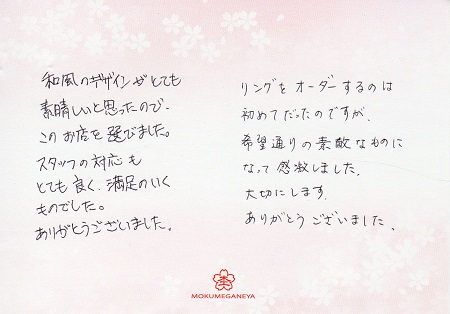 和風のデザインがとても
素晴しいと思ったので、
このお店を選びました。
スタッフの対応も
とても良く、満足のいく
ものでした。
ありがとうございました。
リングをオーダーするのは
初めてだったのですが、
希望通りの素敵なものに
なって感激しました。
大切にします。
ありがとうございました。
MOKUMEGANEYA